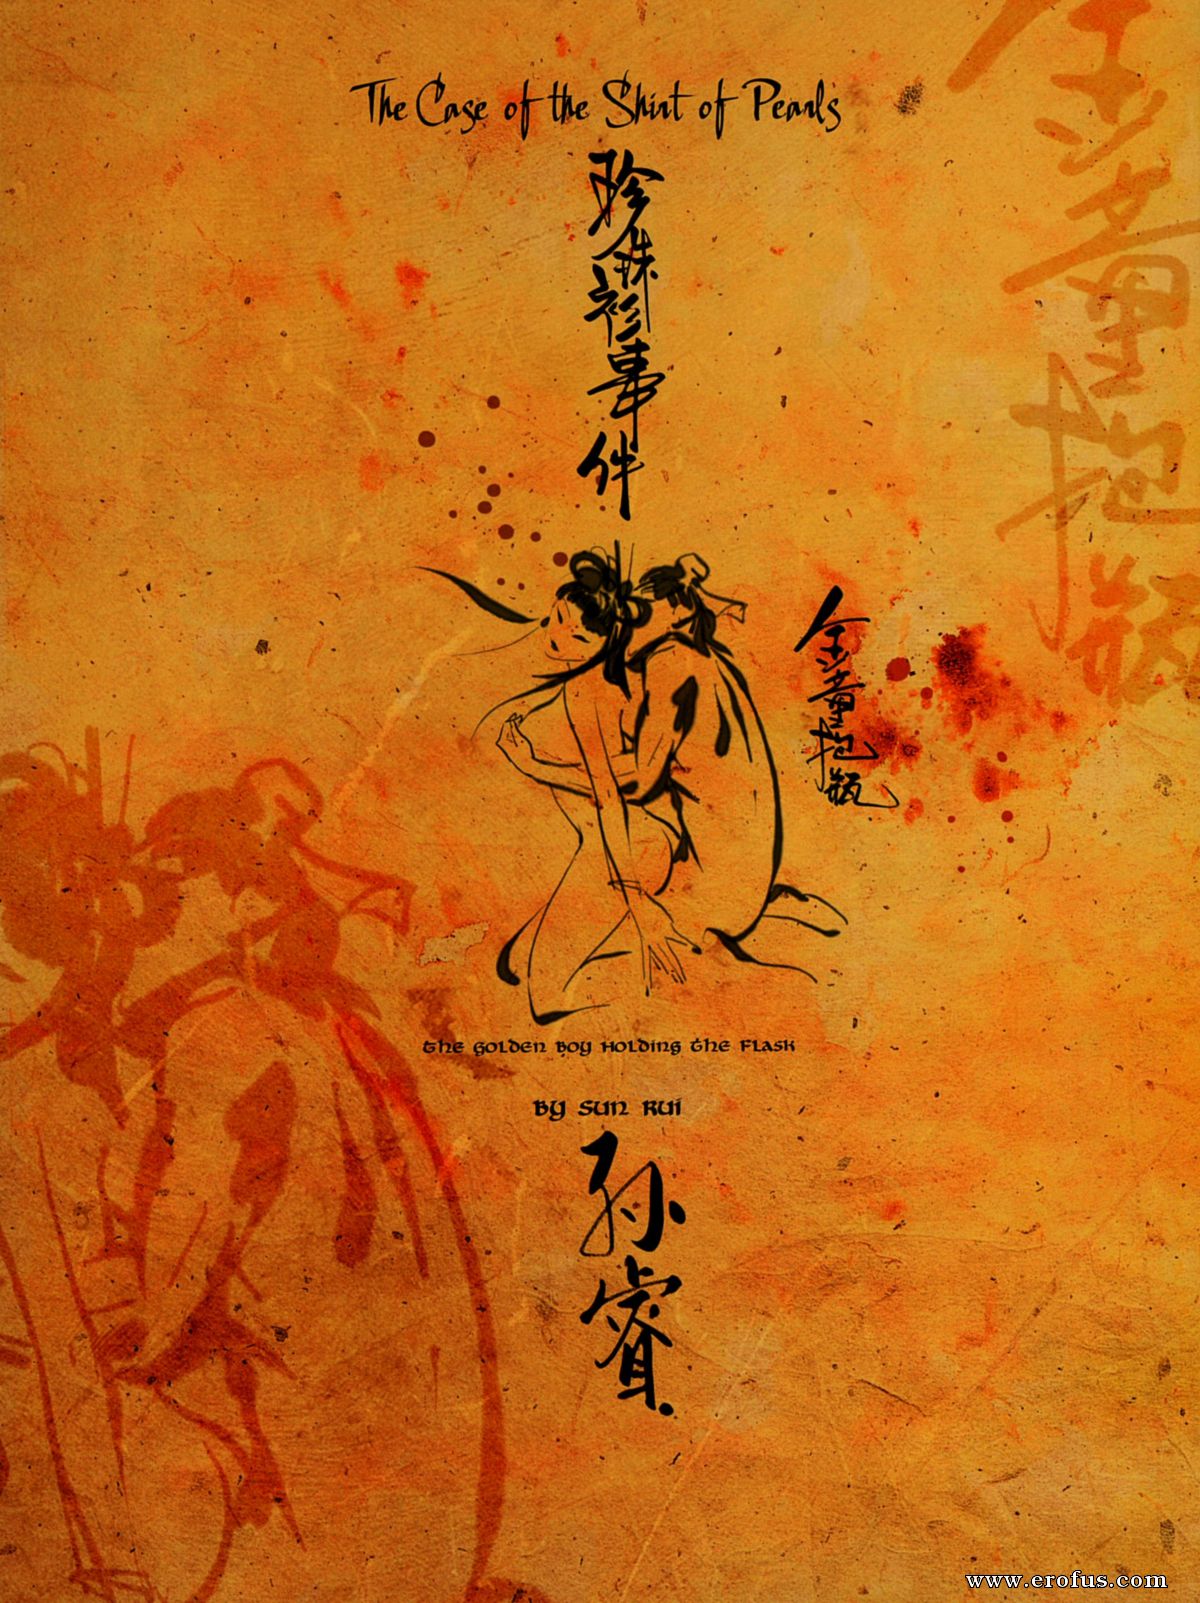 The Case of the Shirt of Pearls
珍珠衫事件
金童抱瓶
金童抱瓶
The Golden Boy Holding the Flask
By Sun Rui
孙睿
www.erofus.com